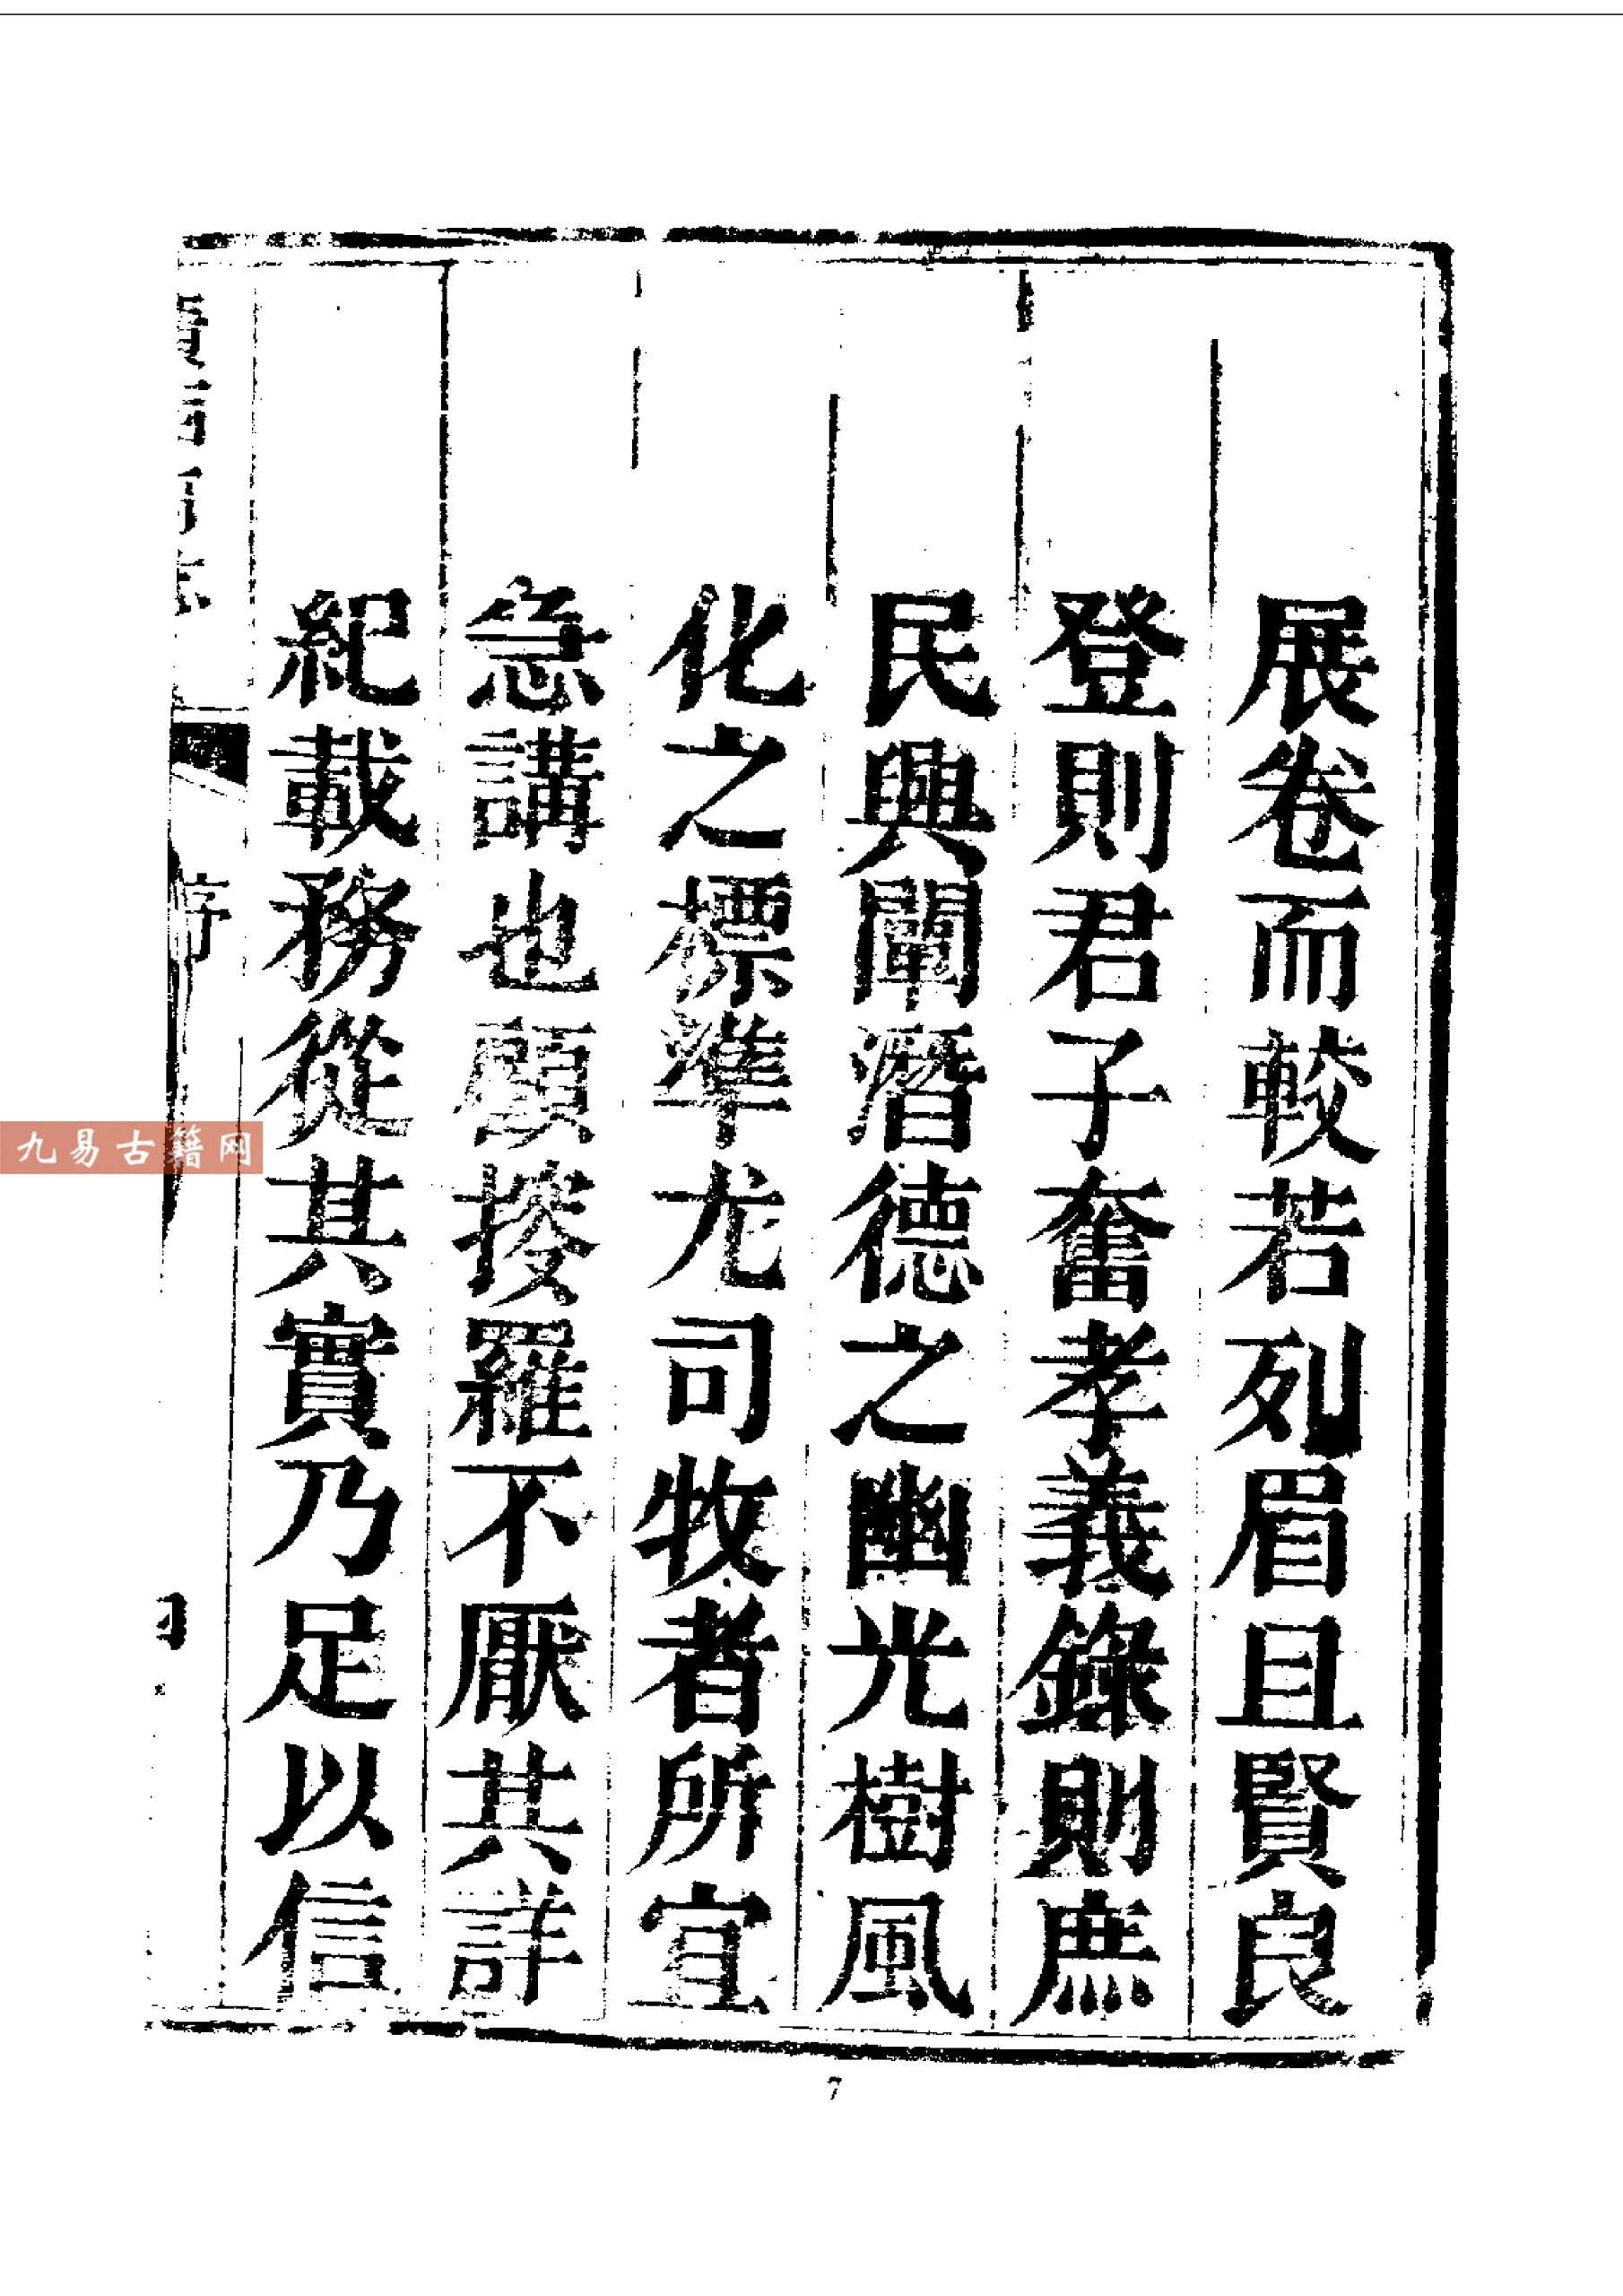 展卷而較若列眉且賢良
登則君子奮孝義錄則庶
民興闡潛德之幽光樹風
化之標準尤司牧者所宜
急講也顧搜羅不厭其詳
紀載務從其實乃足以信
序
九易古籍网
7